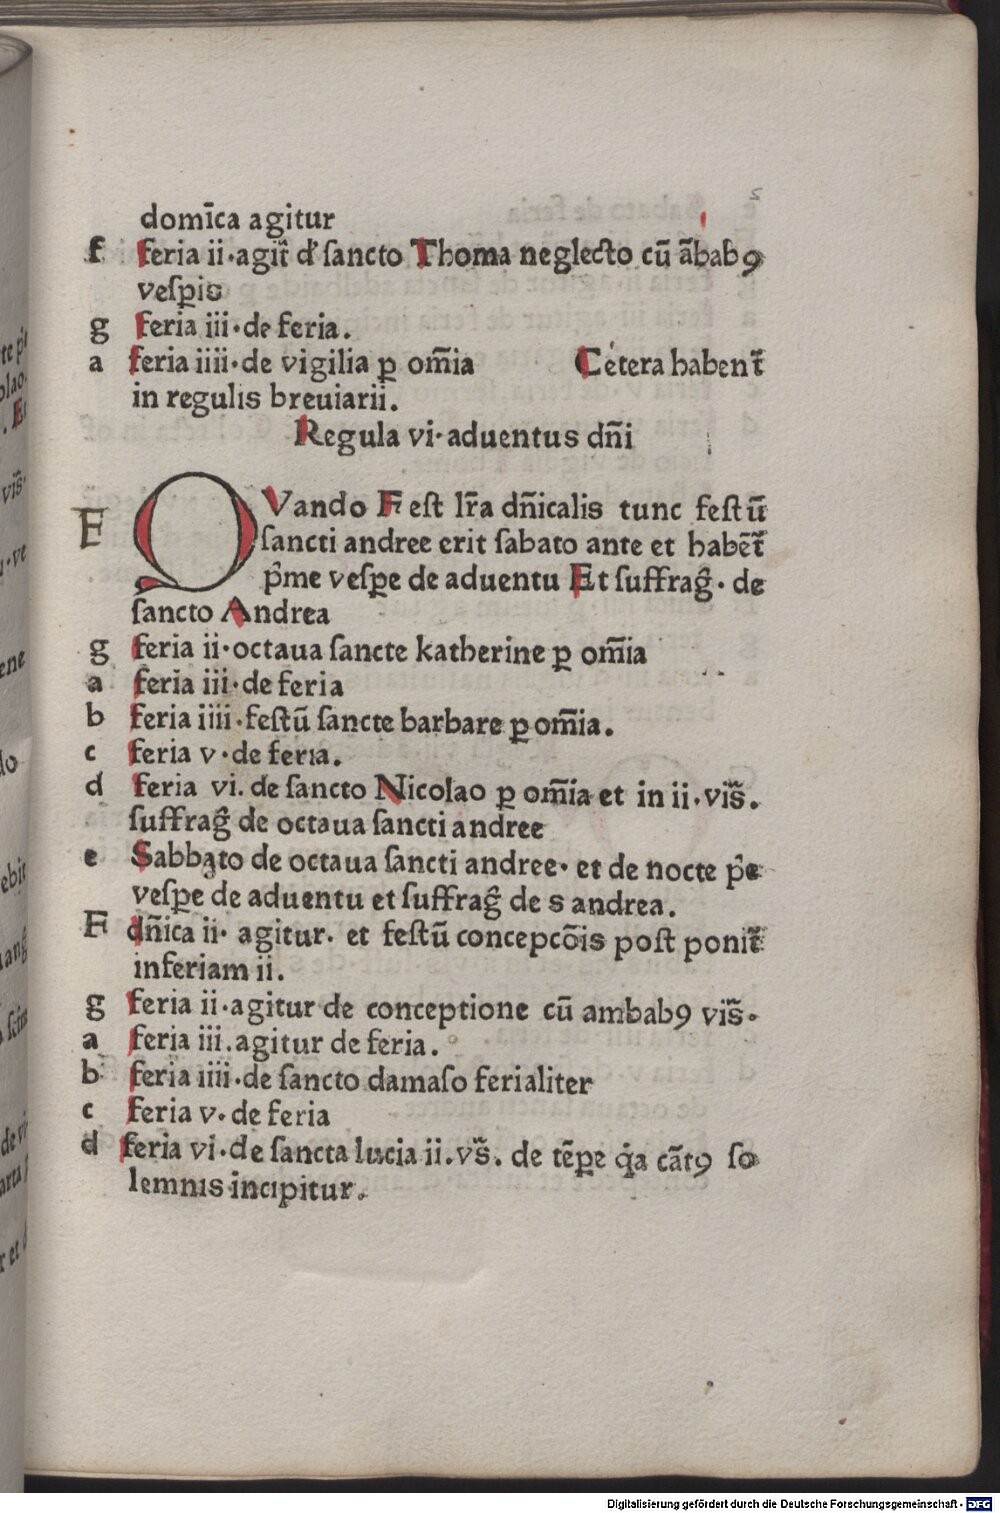 5
domīca agitur
f feria ii·agit᷑ d' sancto Thoma neglecto cū ābabꝯ
vesꝑis
g feria iii·de feria.
a feria iiii·de vigilia ꝑ om̄ia Cetera habent᷑
in regulis breuiarii.
Regula vi·aduentus dn̄i
F QVando F est lr̄a dn̄icalis tunc festū
sancti andree erit sabato ante et habēt᷑
p̄me vesꝑe de aduentu Et suffrag̃· de
sancto Andrea
g feria ii·octaua sancte katherine ꝑ om̄ia
a feria iii·de feria
b feria iiii·festū sancte barbare ꝑ om̄ia.
c feria v·de feria.
d feria vi. de sancto Nicolao ꝑ om̄ia et in ii·vis̃.
suffrag̃ de octaua sancti andree
e Sabbato de octaua sancti andree· et de nocte p̄e
vesꝑe de aduentu et suffrag̃ de s andrea.
F dn̄ica ii· agitur· et festū concepcōis post ponit᷑
inferiam ii.
g feria ii·agitur de conceptione cū ambabꝯ vis̃·
a feria iii.agitur de feria.
b feria iiii·de sancto damaso ferialiter
c feria v·de feria
d feria vi·de sancta lucia ii.vs̃. de tēꝑe q̇a cāt9 so
lemnis incipitur.
Digitalisierung gefördert durch die Deutsche Forschungsgemeinschaft - DFG